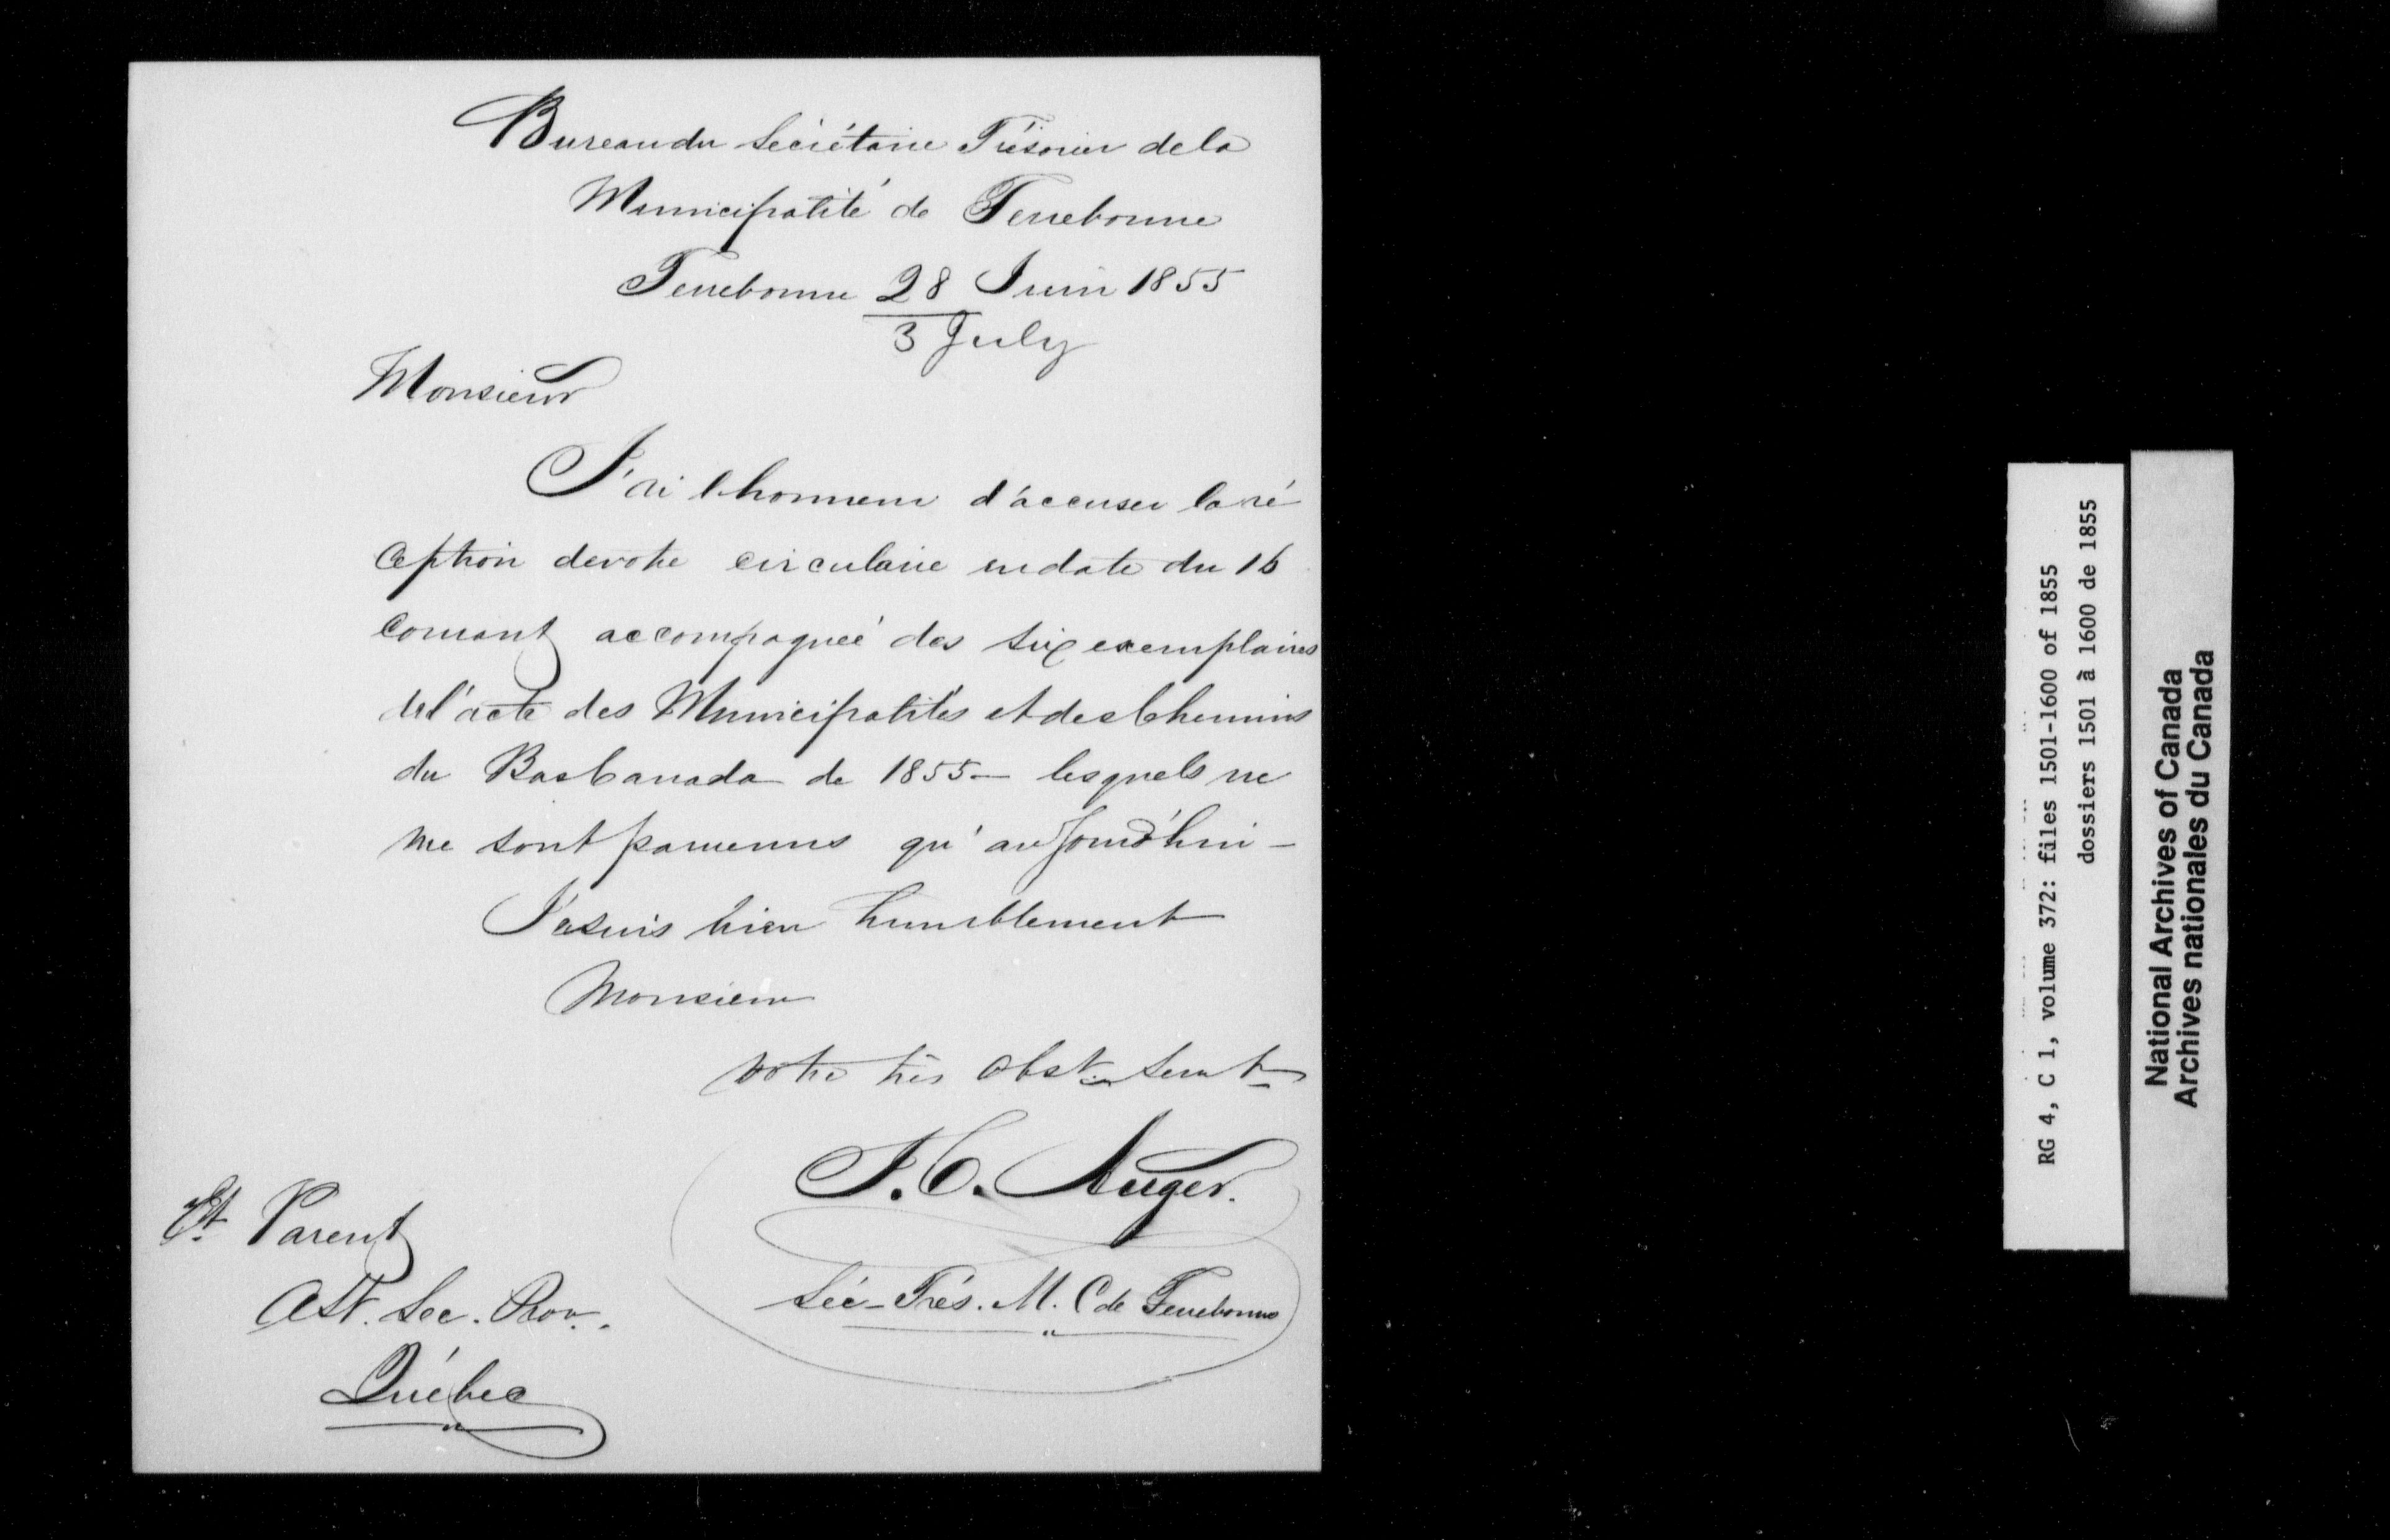 Bureau du Sécrétaire Trésorier de la
Municipalité de Terrebonne
Terrebonne 28 Juin 1855
3 July
Monsieur
J'ai l'honneur d'accuser la ré
ception de votre circulaire en date du 16
courant accompagnée des six exemplaires
de l'acte des Municipalités et des Chemins
du Bas Canada de 1855 — lesquels ne
me sont parvenus qu'aujourd'hui —
Je suis bien humblement
Monsieur
votre très obst. servt.
J. C. Auger.
Et. Parent
Séc-Trés. M. C de Terrebonne
Asst. Sec. Prov.
Québec
RG 4, C 1, volume 372: files 1501-1600 of 1855
dossiers 1501 à 1600 de 1855
National Archives of Canada
Archives nationales du Canada